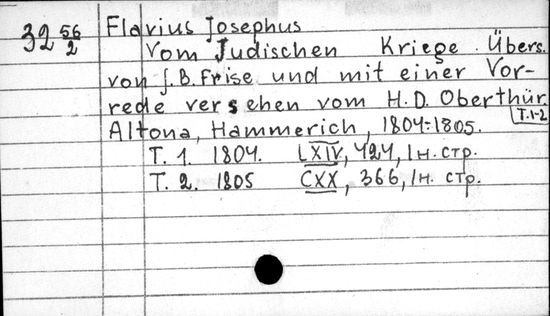 32 56/2
Flavius Josephus
Vom Judischen Kriege. Übers.
von J.B. Frise und mit einer Vor-
rede versehen vom H.D. Oberthür.
T.1-2
Altona, Hammerich, 1804-1805.
T. 1. 1804. LXIV, 424, 1н. стр.
T. 2. 1805 CXX, 366, 1н. стр.